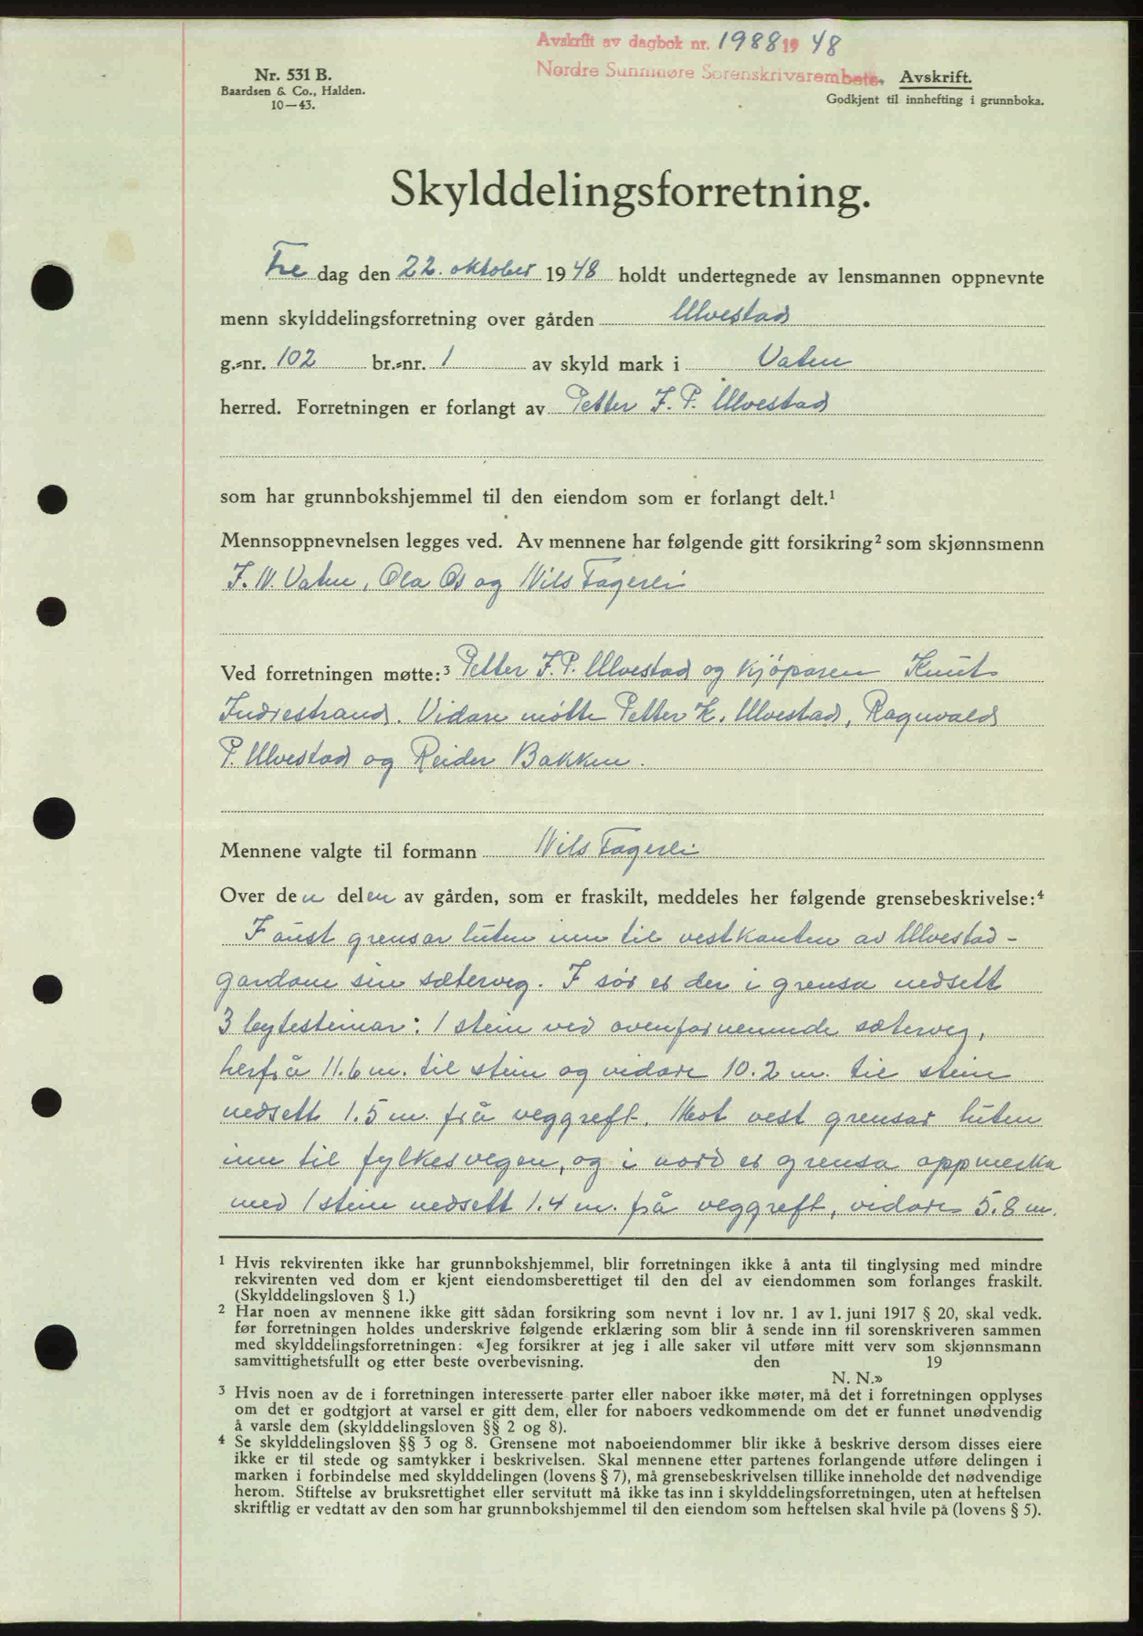 Avskrift av dagbok nr. 1988 1948
Nordre Sunnmøre Sorenskrivarembete.
Nr. 531 B.
Baardsen & Co., Halden.
10—43.
Avskrift.
Godkjent til innhefting i grunnboka.
Skylddelingsforretning.
Fre dag den 22. oktober 1948 holdt undertegnede av lensmannen oppnevnte
menn skylddelingsforretning over gården Ulvestad
g.-nr. 102 br.-nr. 1 av skyld mark i Vatne
herred. Forretningen er forlangt av Petter J. P. Ulvestad
som har grunnbokshjemmel til den eiendom som er forlangt delt.¹
Mennsoppnevnelsen legges ved. Av mennene har følgende gitt forsikring² som skjønnsmenn
J. W. Vatne, Ola Os og Nils Fagerli
Ved forretningen møtte:³ Petter J. P. Ulvestad og kjøparen Knut
Indrestrand. Vidare møtte Petter K. Ulvestad, Ragnvald
P. Ulvestad og Reidar Bakken.
Mennene valgte til formann Nils Fagerli
Over den delen av gården, som er fraskilt, meddeles her følgende grensebeskrivelse:⁴
I aust grensar luten inn til vestkanten av Ulvestad-
gardane sin sæterveg. I sør er der i grensa nedsett
3 bytesteinar: 1 stein ved ovenfornemnde sæterveg,
herfrå 11.6 m. til stein og vidare 10.2 m. til stein
nedsett 1.5 m. frå veggreft. Mot vest grensar luten
inn til fylkesvegen, og i nord er grensa oppmerka
med 1 stein nedsett 1.4 m. frå veggreft, vidare 5.8 m.
¹ Hvis rekvirenten ikke har grunnbokshjemmel, blir forretningen ikke å anta til tinglysing med mindre
rekvirenten ved dom er kjent eiendomsberettiget til den del av eiendommen som forlanges fraskilt.
(Skylddelingsloven § 1.)
² Har noen av mennene ikke gitt sådan forsikring som nevnt i lov nr. 1 av 1. juni 1917 § 20, skal vedk.
før forretningen holdes underskrive følgende erklæring som blir å sende inn til sorenskriveren sammen
med skylddelingsforretningen: «Jeg forsikrer at jeg i alle saker vil utføre mitt verv som skjønnsmann
samvittighetsfullt og etter beste overbevisning. den 19
N. N.»
³ Hvis noen av de i forretningen interesserte parter eller naboer ikke møter, må det i forretningen opplyses
om det er godtgjort at varsel er gitt dem, eller for naboers vedkommende om det er funnet unødvendig
å varsle dem (skylddelingsloven §§ 2 og 8).
⁴ Se skylddelingsloven §§ 3 og 8. Grensene mot naboeiendommer blir ikke å beskrive dersom disses eiere
ikke er til stede og samtykker i beskrivelsen. Skal mennene etter partenes forlangende utføre delingen i
marken i forbindelse med skylddelingen (lovens § 7), må grensebeskrivelsen tillike inneholde det nødvendige
herom. Stiftelse av bruksrettighet eller servitutt må ikke tas inn i skylddelingsforretningen, uten at heftelsen
skriftlig er vedtatt av den som har grunnbokshjemmel til den eiendom som heftelsen skal hvile på (lovens § 5).